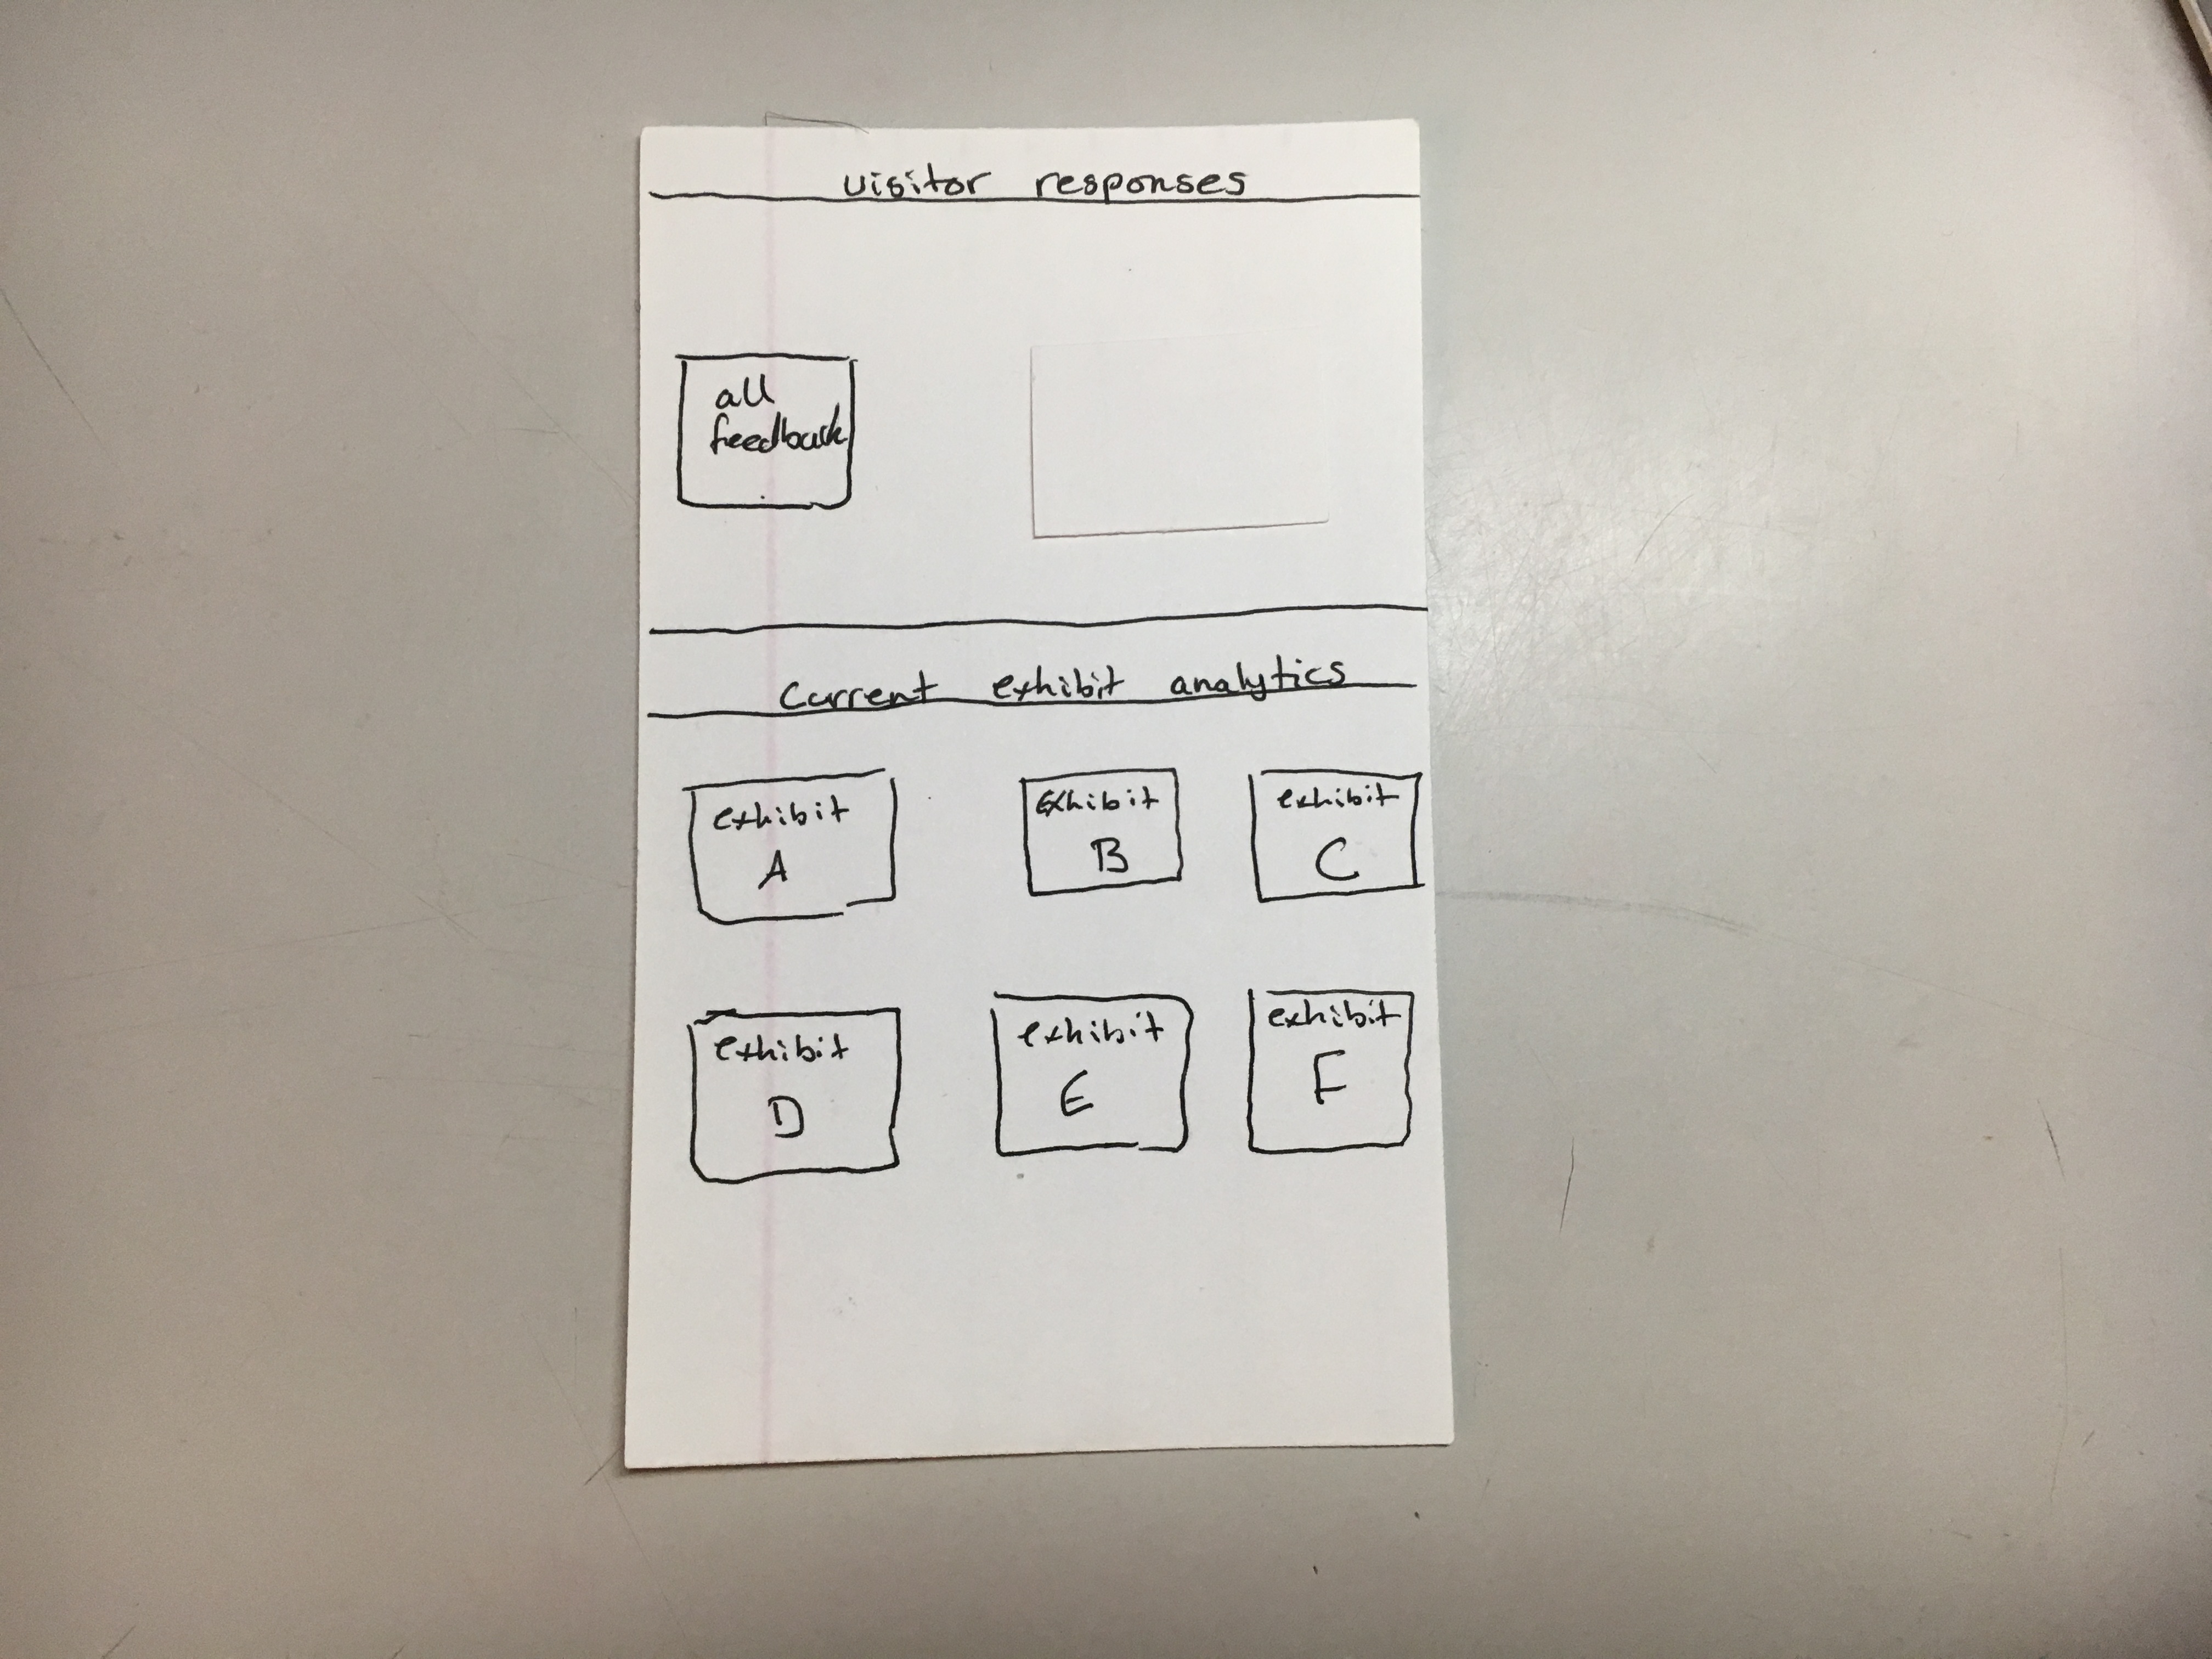 visitor responses
all
feedback
Current exhibit analytics
exhibit
A
exhibit
B
exhibit
C
exhibit
D
exhibit
E
exhibit
F